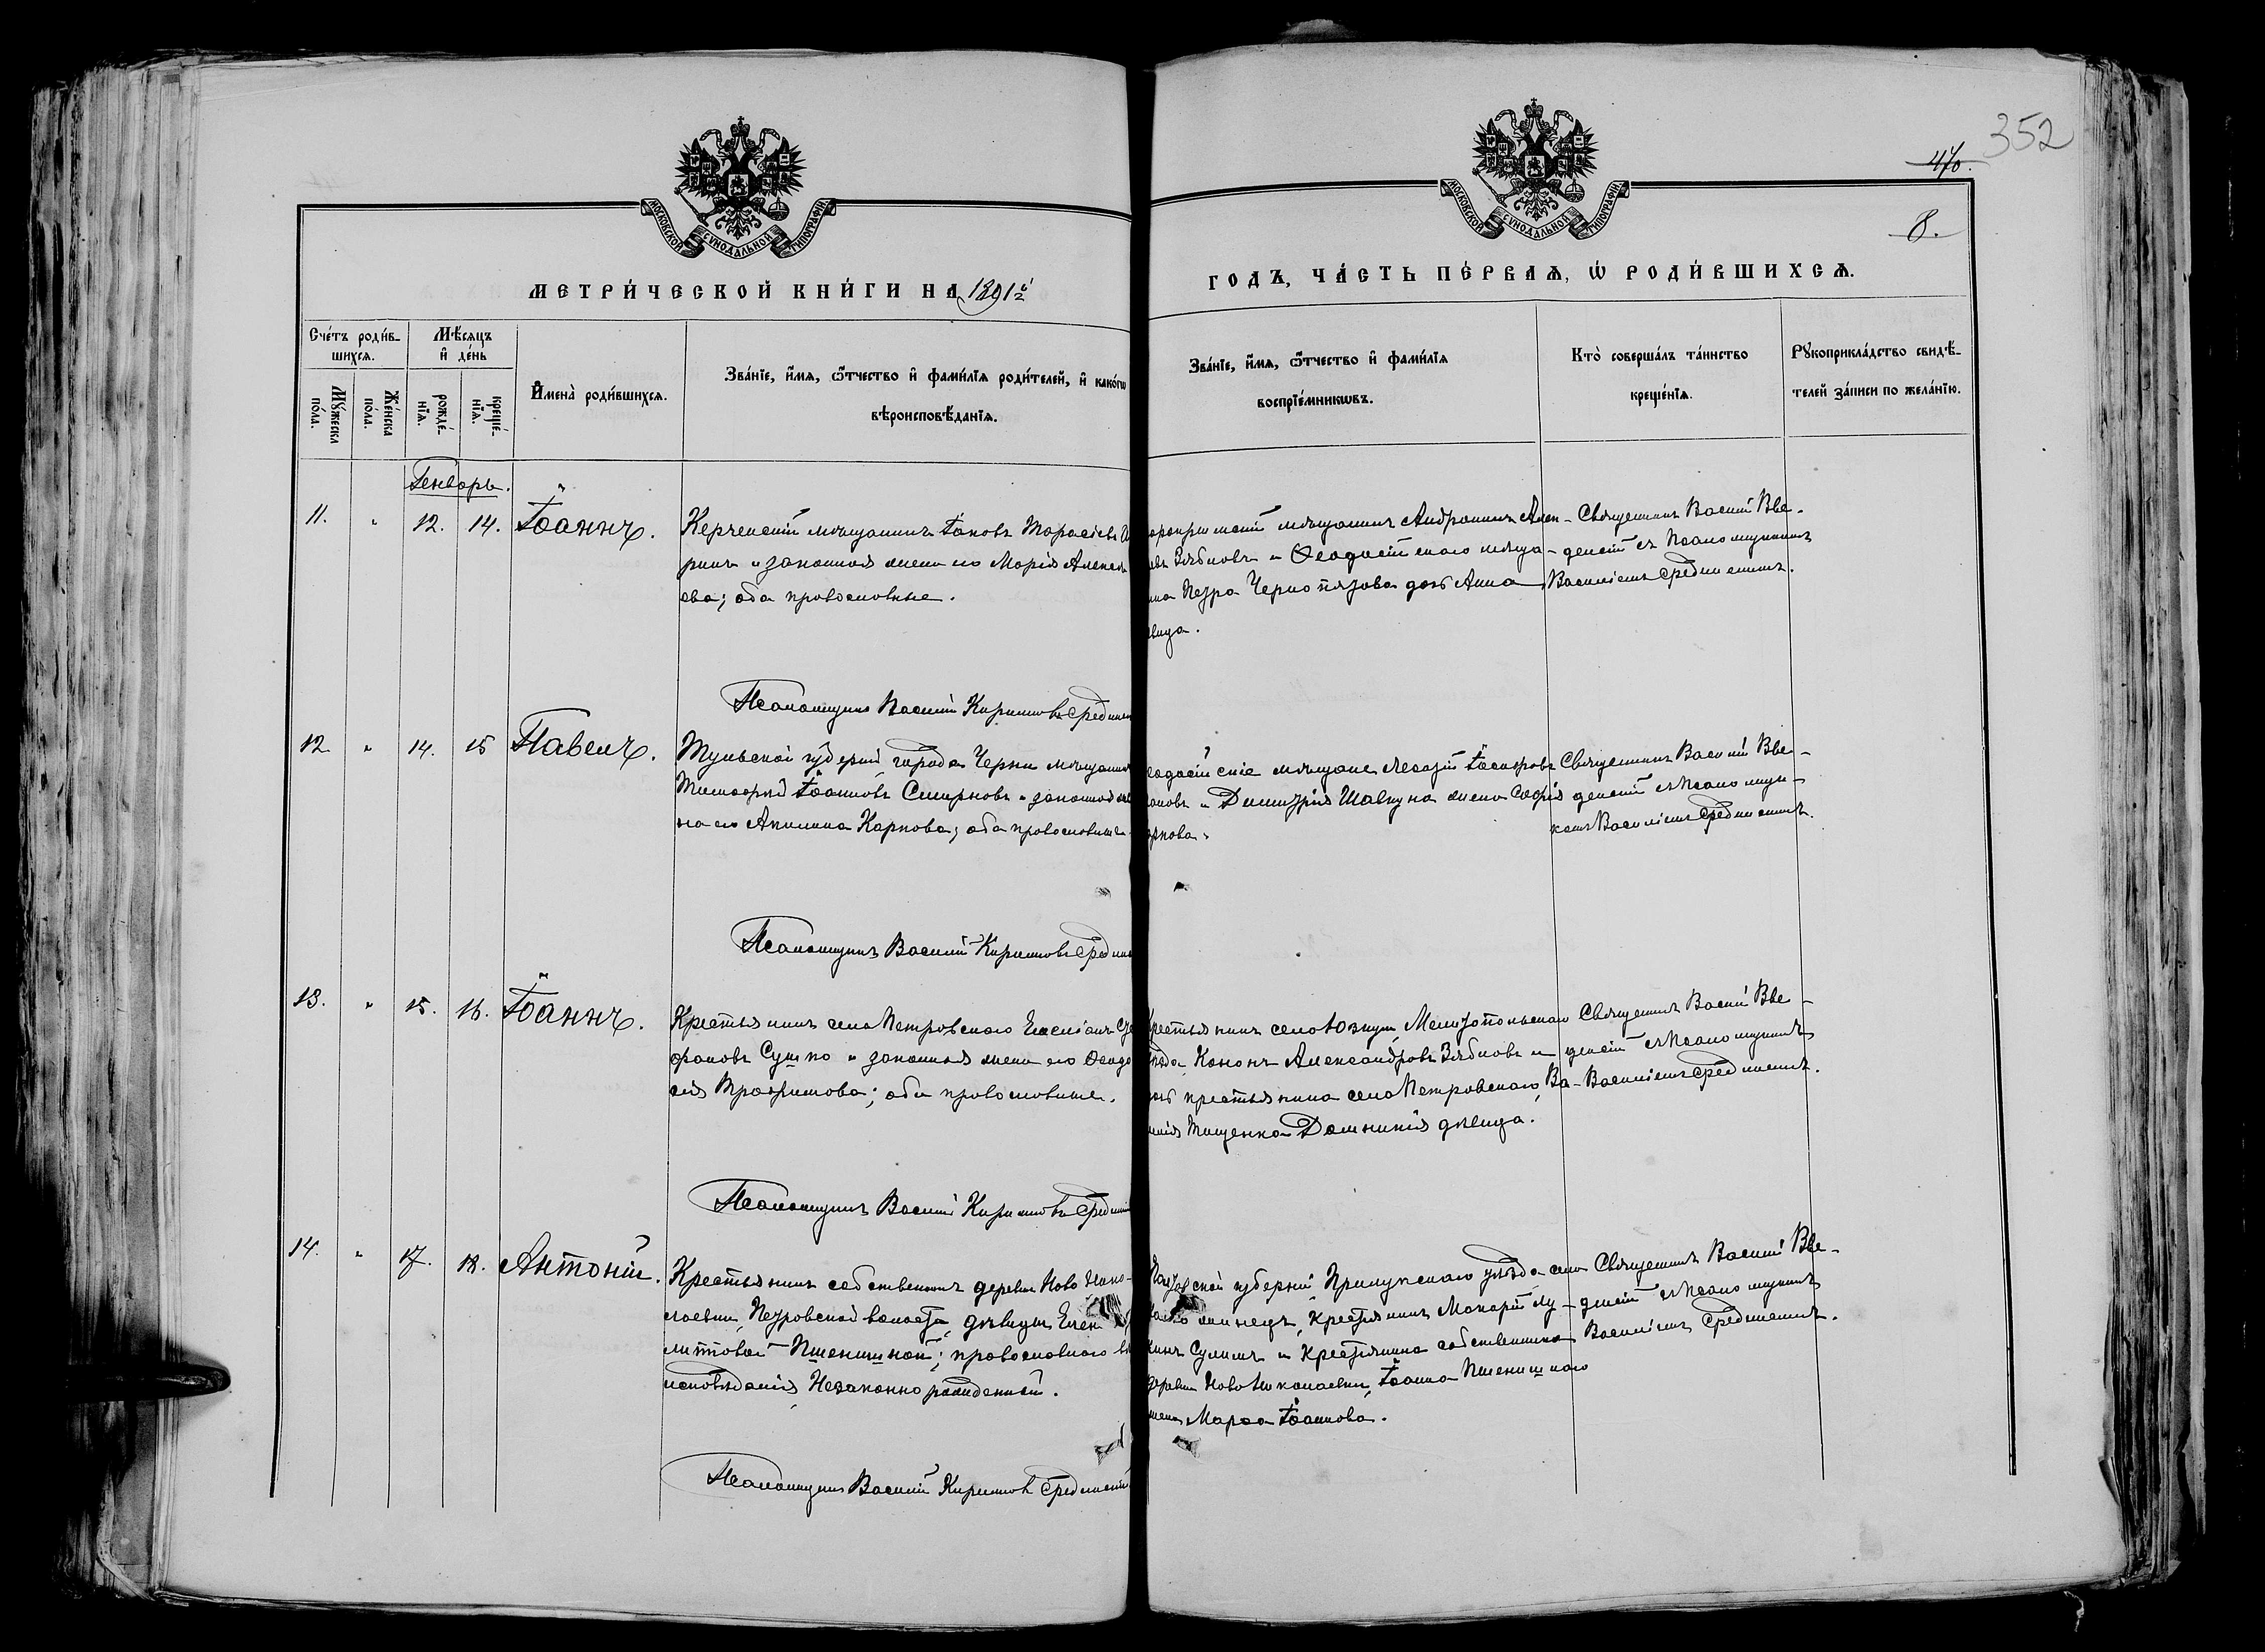 352
470.
8.
МОСКОВСКОЙ СѴНОДАЛЬНОЙ ТИПОГРАФІИ
МОСКОВСКОЙ СѴНОДАЛЬНОЙ ТИПОГРАФІИ
МЕТРИ́ЧЕСКОЙ КНИ́ГИ НА 1891й
ГОДЪ, ЧА́СТЬ ПЕ́РВАѦ, Ѡ҆ РОДИ́ВШИХСѦ.
Сче́тъ роди́в-
шихсѧ.
Мѣ́сѧцъ
и҆ де́нь
Мꙋ́жеска
по́ла.
Же́нска
по́ла.
рожде́-
нїѧ.
креще́-
нїѧ.
И҆мена̀ роди́вшихсѧ.
Зва́нїе, и҆́мѧ, ѻ҆́тчество и҆ фами́лїѧ роди́телей, и҆ како́гѡ
вѣроисповѣ́данїѧ.
Зва́нїе, и҆́мѧ, ѻ҆́тчество и҆ фами́лїѧ
воспрїе́мникѡвъ.
Кто̀ соверша́лъ та́инство
креще́нїѧ.
Рꙋкоприкла́дство свидѣ́-
телей за́писи по жела́нїю.
Генварь.
11. " 12. 14. Іоаннъ.
Керченскій мѣщанинъ Іаковъ Тарасіевъ
ринъ и законная жена его Марія Алексѣ
ева; оба православные.
мѣщанинъ Андроникъ Алек-
Зябловъ и Ѳеодосійскаго мѣща-
Петра Чернотязова дочь Анна
вица.
Священникъ Василій Вве-
денскій съ Псаломщикомъ
Василіемъ Срединскимъ.
Псаломщикъ Василій Кириловъ Средин
12. " 14. 15 Павелъ.
Тульской губерніи города Черни мѣщанинъ
Тимофей Іоанновъ Смирновъ и законная же
на его Акилина Карпова; оба православные
еодосійскіе мѣщане Леонтій Іосифовъ
и Димитрія Шавкуна жена Софія
рпова.
Священникъ Василій Вве-
денскій съ Псаломщи-
комъ Василіемъ Срединскимъ.
Псаломщикъ Василій Кириловъ Средин
13. " 15. 16. Іоаннъ.
Крестьянинъ села Петровскаго Евсигній Сте
фановъ Сушко и законная жена его Ѳеодо
сія Трофимова; оба православные.
рестьянинъ села Юзкуи, Мелитопольскаго
ѣзда Кононъ Александровъ Зябловъ и
дочь крестьянина села Петровскаго, Ва-
силія Тищенка Домникія дѣвица.
Священникъ Василій Вве-
денскій съ Псаломщикомъ
Василіемъ Срединскимъ.
Псаломщикъ Василій Кириловъ Средин
14. " 17. 18. Антоній.
Крестьянинъ собственникъ деревни Ново Нико-
лаевки, Петровской волости, дѣвицы Елен
литовой Пшеничной; православнаго вѣ
исповѣданія, Незаконнорожденный.
Полтавской губерніи, Прилукскаго уѣзда села
крестьянинъ Макарій Лу-
кинъ Сулимъ и крестьянина собственника
деревни Ново Николаевки, Іоанна Пшеничнаго
жена Марѳа Іоаннова.
Священникъ Василій Вве-
денскій съ Псаломщикомъ
Василіемъ Срединскимъ.
Псаломщикъ Василій Кириловъ Срединскій